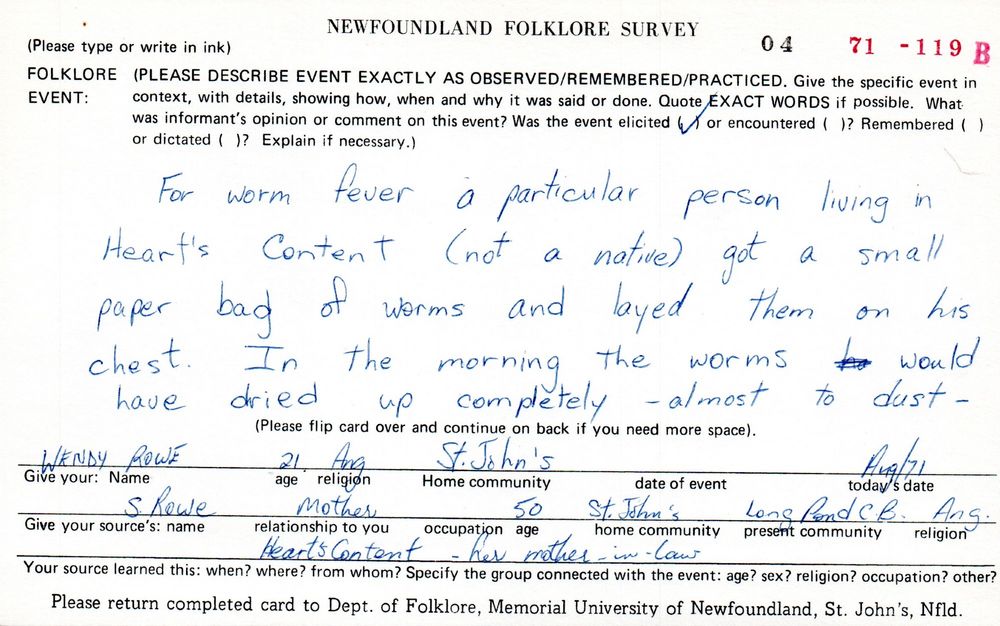 NEWFOUNDLAND FOLKLORE SURVEY
(Please type or write in ink)
04 71 -119 B
FOLKLORE (PLEASE DESCRIBE EVENT EXACTLY AS OBSERVED/REMEMBERED/PRACTICED. Give the specific event in
EVENT: context, with details, showing how, when and why it was said or done. Quote EXACT WORDS if possible. What
was informant's opinion or comment on this event? Was the event elicited (✓) or encountered ( )? Remembered ( )
or dictated ( )? Explain if necessary.)
For worm fever a particular person living in
Heart's Content (not a native) got a small
paper bag of worms and layed them on his
chest. In the morning the worms would
have dried up completely - almost to dust -
(Please flip card over and continue on back if you need more space).
WENDY ROWE 21 Ang St. John's Aug/71
Give your: Name age religion Home community date of event today's date
S. Rowe Mother 50 St. John's Long Pond C.B. Ang.
Give your source's: name relationship to you occupation age home community present community religion
Heart's Content - her mother-in-law
Your source learned this: when? where? from whom? Specify the group connected with the event: age? sex? religion? occupation? other?
Please return completed card to Dept. of Folklore, Memorial University of Newfoundland, St. John's, Nfld.